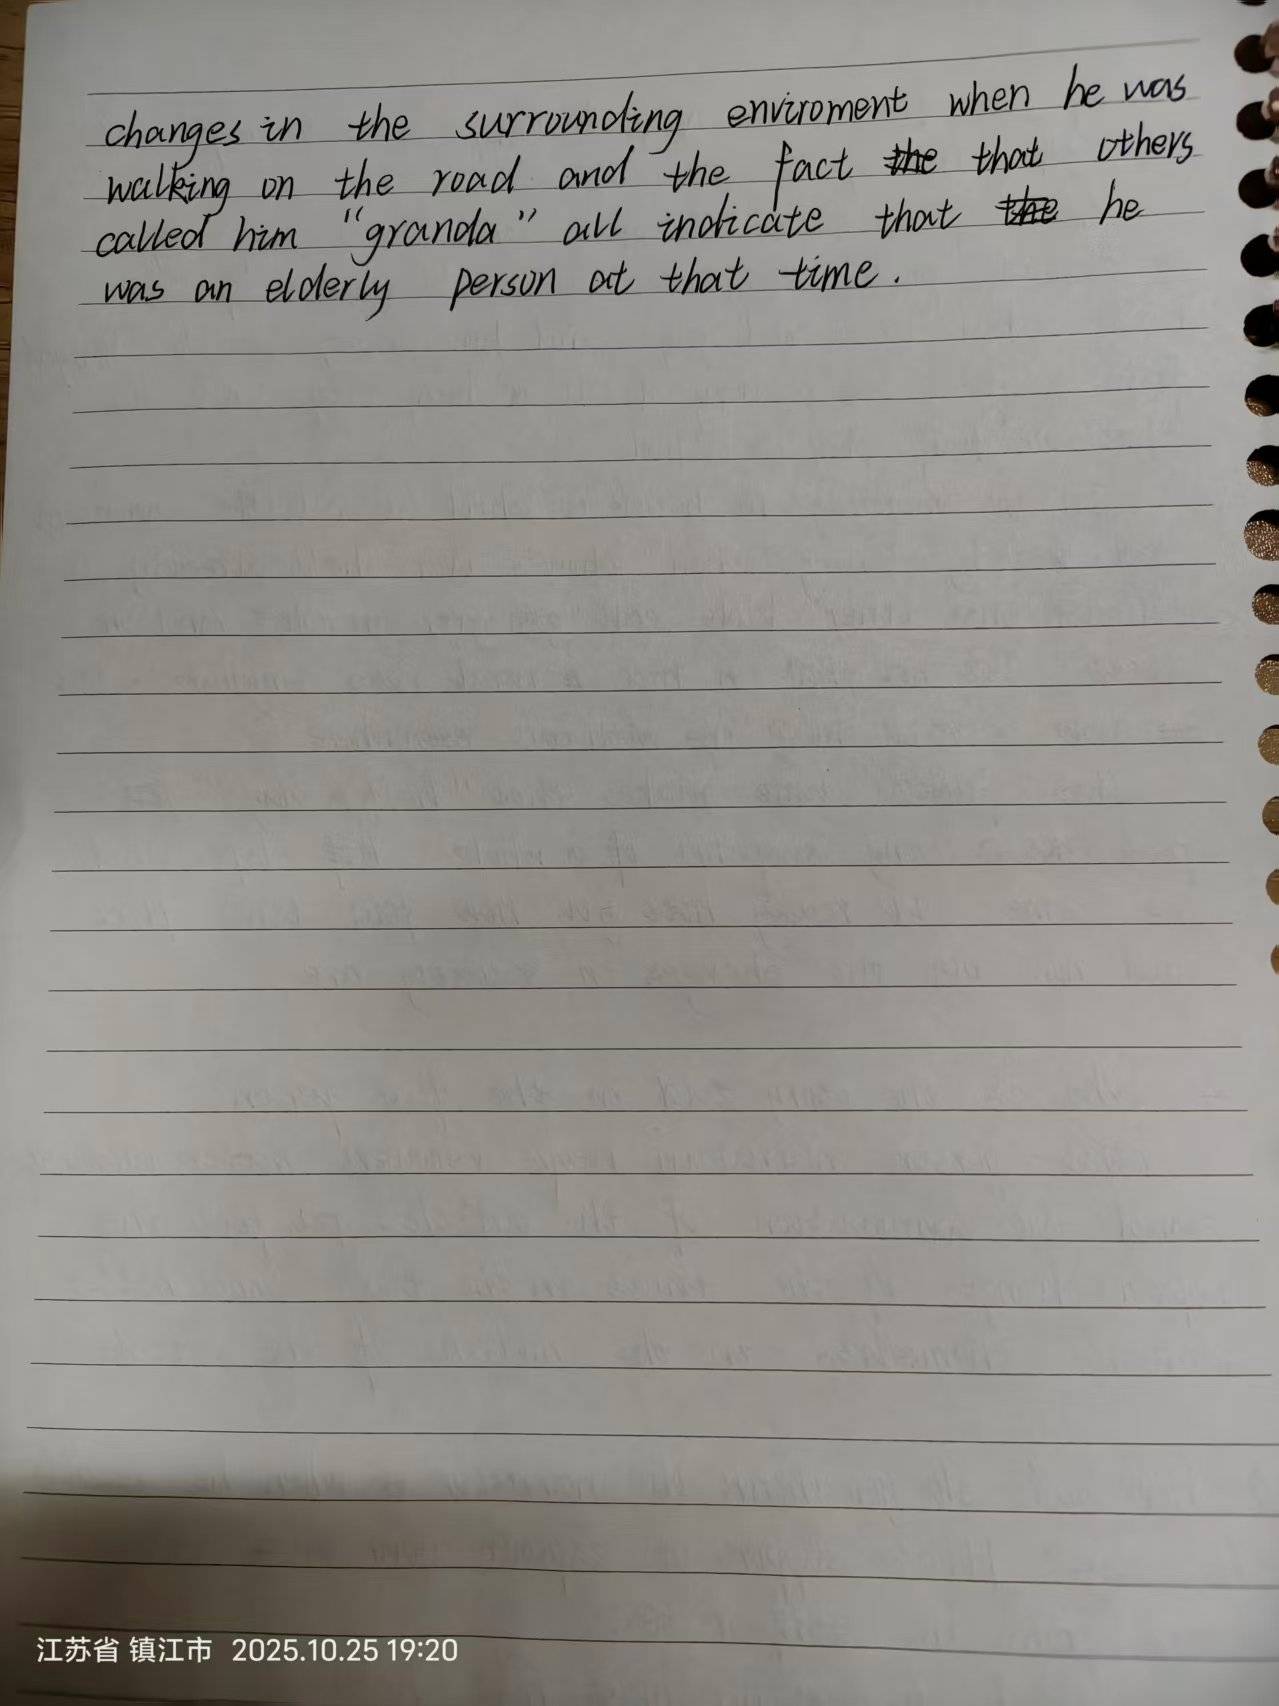 changes in the surrounding enviroment when he was
walking on the road and the fact the that others
called him “granda” all indicate that the he
was an elderly person at that time.
江苏省 镇江市 2025.10.25 19:20